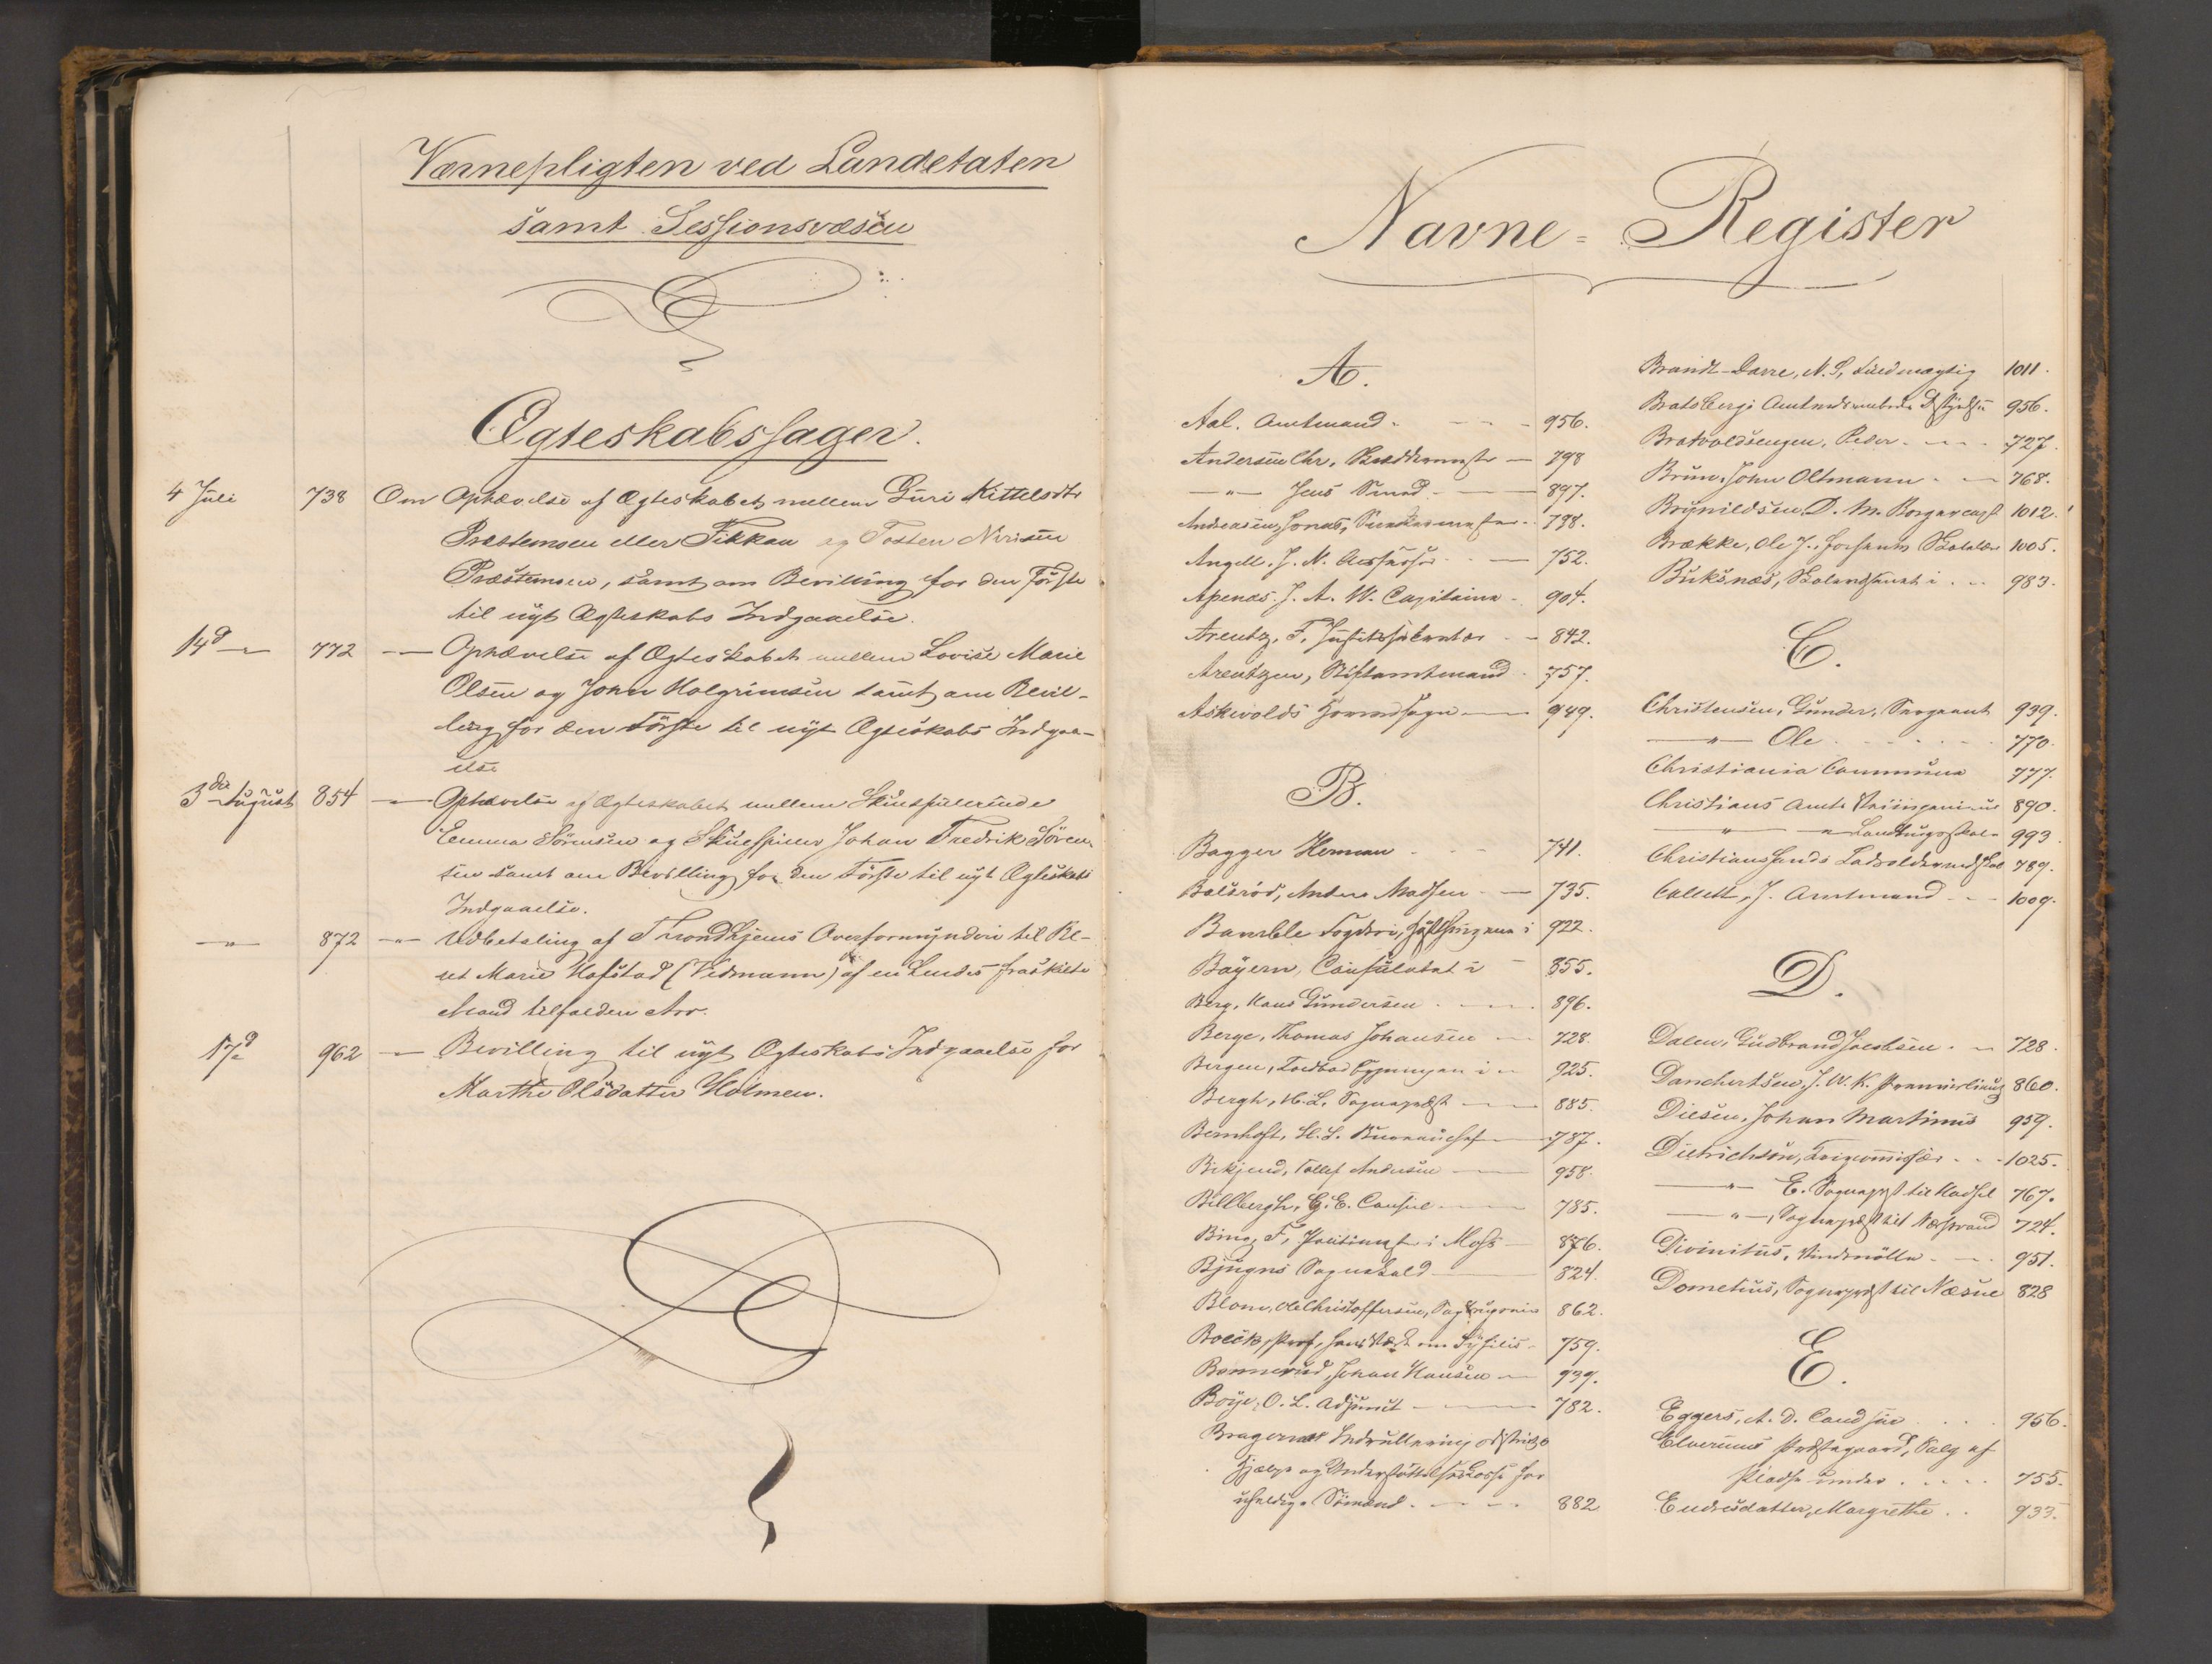 Værnepligten ved Landetaten
samt Sessionsvæsen
Ægteskabssager.
4 Juli 738 Om Ophævelse af Ægteskabet mellem Guri Kittelsdtr
Præstemoen eller Fikkan og Tosten Nirisen
Præstemoen, samt om Bevilling for den Første
til nyt Ægteskabs Indgaaelse.
14d — 772 — Ophævelse af Ægteskabet mellem Lovise Marie
Olsen og John Holgrimsen samt om Bevil-
ling for den Første til nyt Ægteskabs Indgaa-
else
3die August 854 — Ophævelse af Ægteskabet mellem Skuespillerinde
Emma Sörensen og Skuespiller Johan Fredrik Sören-
sen samt om Bevilling for den Første til nyt Ægteskabs
Indgaaelse.
— " — 872 — Udbetaling af Throndhjems Overformynderi til
Marie Hofstad (Vidmann) af en hendes fraskilte
Mand tilfalden Arv.
17d 962 — Bevilling til nyt Ægteskabs Indgaaelse for
Marthe Olsdatter Holmen.
Navne-Register
A.
Aal. Amtmand 956.
Andersen Chr. 798
— " — Jens Smed 897.
Andreasen, Jonas, 738.
Angell. J. M. Assessor 752.
Apenæs. J. A. W. Capitaine 904.
Arentz, F. 842.
Arentzen, Stiftamtmand 757.
Askevolds 949.
B.
Bagger Herman 741.
Balsröd, Anders Madsen 735.
Bamble Fogderi, i 922.
Bayern, Consulatet i 855.
Berg, Hans Gundersen 896.
Berge, Thomas Johansen 728.
Bergen, i 925.
Bergh, H. L. Sognepræst 885.
Bernhoft, H. L. Bureauchef 787.
Birkjend, Tollef Andersen 958.
Billbergh, G. E. Consul 785.
Bing, F, Politimester i Moss 876.
Bjugns Sognekald 824.
Blom, Ole Christoffersen, 862.
Boeck, Prof, hans Værk om Syfilis 759.
Bonnerud, Johan Hansen 939.
Böye, O. L. Adjunct 782.
Bragernæs Indrulleringsdistrikts
Hjælpe og Understöttelseskasse for
uheldige Sömænd 882
Brandt-Darre, N. S, Fuldmægtig 1011.
Bratsbergs Amtmandsembede 956.
Bratvoldsengen, Peder 727.
Brun, John Oltmann 768.
Brynildsen D. M. 1012.
Brække, Ole J., 1005.
Buksnæs, i 983.
C.
Christensen, Gunder, Sergeant 939.
— " — Ole 770.
Christiania Commune 777.
Christians Amts Veiingenieur 890.
— " — " Landbrugsskole 993.
Christianssands 789.
Collett, J. Amtmand 1009.
D.
Dalen, Gudbrand Jacobsen 728.
Danchertsen, J. W. K. Premierlieut. 860.
Diesen, Johan Martinus 959.
Dietrichson, 1025.
— " — E. Sognepræst til Hadsel 767.
— " —, Sognepræst til Næstrand 724.
Divinitus, Vindmölle 951.
Dometius, Sognepræst til Næsne 828
E.
Eggers, A. D. Cand jur 956.
Elverums Præstegaard, Salg af
Pladse under 755.
Endresdatter, Margrethe 933.